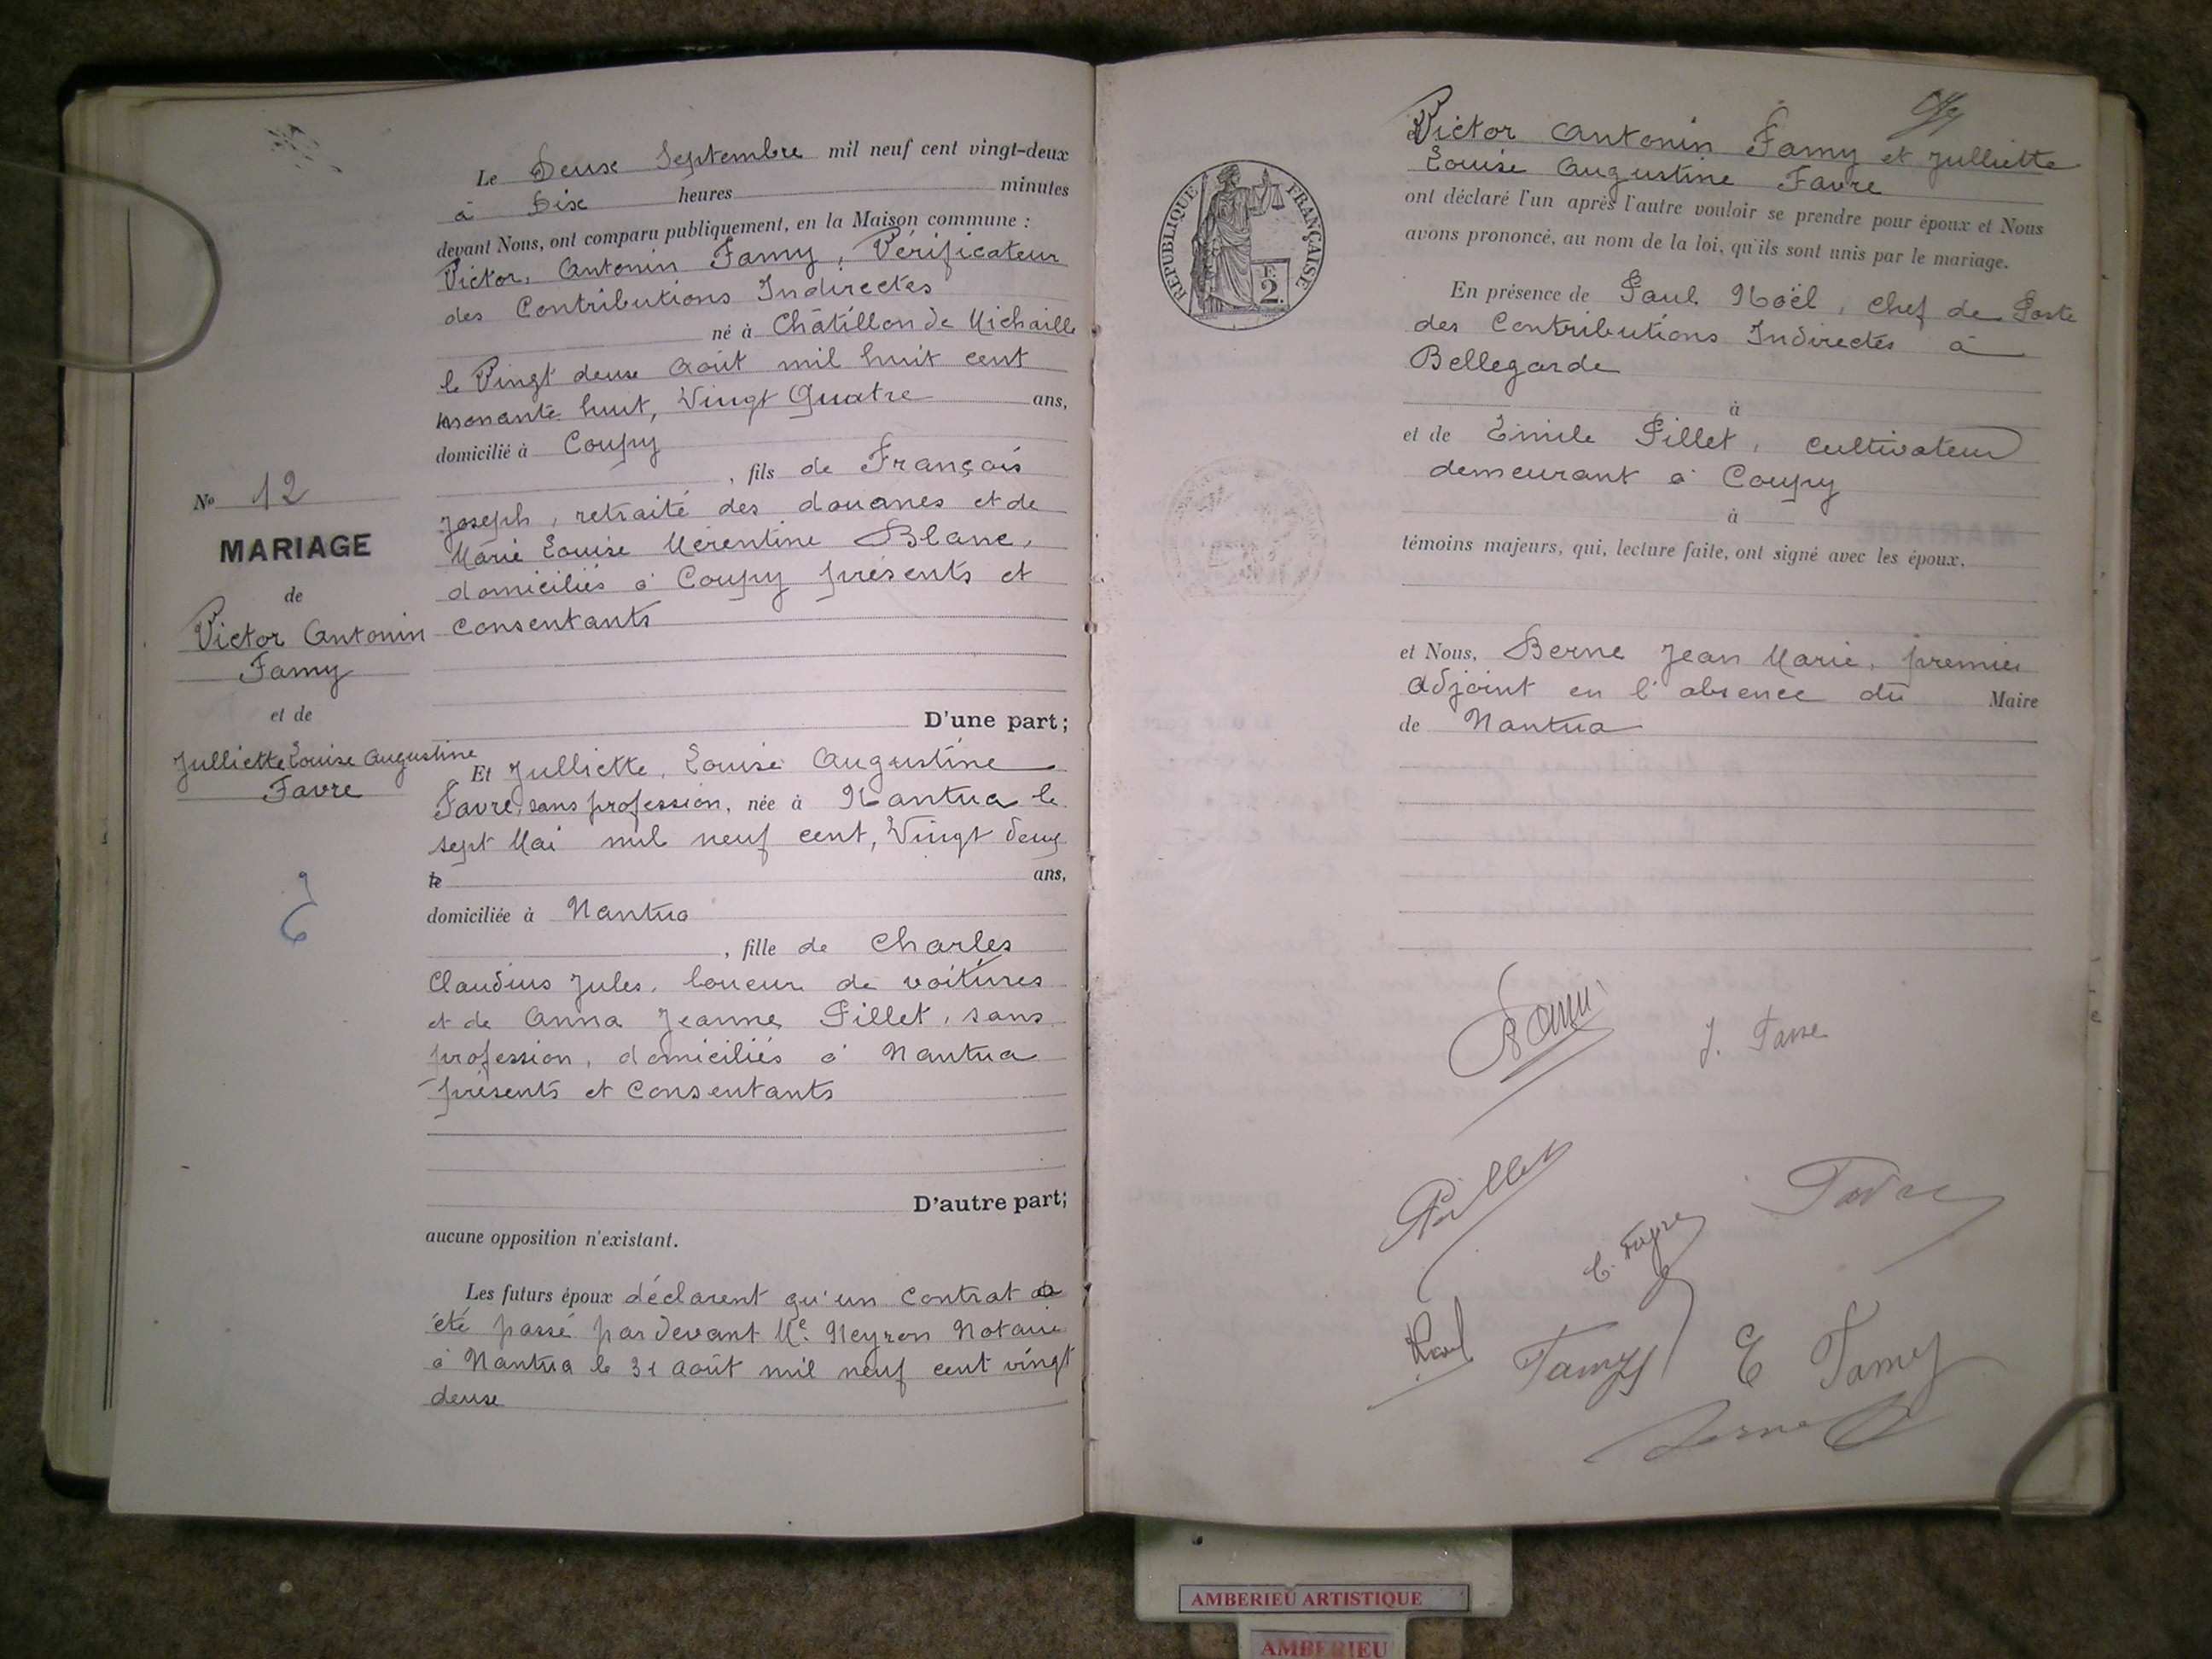 Le Deux Septembre mil neuf cent vingt-deux
à Dix heures minutes
devant Nous, ont comparu publiquement, en la Maison commune :
Victor, Antonin Famy, Vérificateur
des Contributions Indirectes
né à Châtillon de Michaille
le Vingt deux Août mil huit cent
huit, Vingt Quatre ans,
domicilié à Coupy
, fils de François
Joseph, retraité des douanes et de
Marie Louise Mérentine Blanc,
domiciliés à Coupy présents et
consentants
D'une part;
No 12
MARIAGE
de
Victor Antonin
Famy
et de
Julliette Louise Augustine
Favre
Et Julliette, Louise Augustine
Favre, sans profession, née à Nantua le
sept Mai mil neuf cent, Vingt deux
ans,
domiciliée à Nantua
, fille de Charles
Claudius Jules, loueur de voitures
et de Anna Jeanne Pillet, sans
profession, domiciliés à Nantua
présents et consentants
D'autre part;
aucune opposition n'existant.
Les futurs époux déclarent qu'un contrat a
été passé par devant Me. Neyron Notaire
à Nantua le 31 août mil neuf cent vingt
deux
Victor Antonin Famy et Julliette
Louise Augustine Favre
ont déclaré l'un après l'autre vouloir se prendre pour époux et Nous
avons prononcé, au nom de la loi, qu'ils sont unis par le mariage.
RÉPUBLIQUE FRANÇAISE
F.
2.
En présence de Paul Noël, chef de Poste
des Contributions Indirectes à
Bellegarde
à
et de Emile Pillet, cultivateur
demeurant à Coupy
à
témoins majeurs, qui, lecture faite, ont signé avec les époux,
et Nous, Berne Jean Marie, premier
Adjoint en l'absence du Maire
de Nantua
Famy
J. Favre
Pillet
Favre
C. Favre
Noël
Famy
E Famy
Berne
AMBERIEU ARTISTIQUE
AMBERIEU